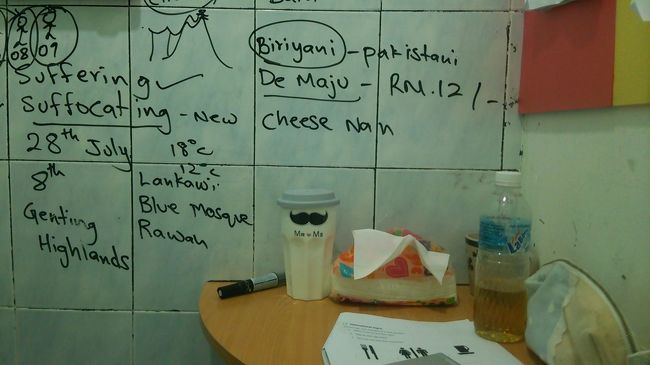 08 09
Suffering
Suffocating - New
28th July
8th
Genting
Highlands
18°c
12°c
Lankawi
Blue Mosque
Rawan
Biriyani - pakistani
De Maju - RM.12/-
cheese Nan
Mr = Ms